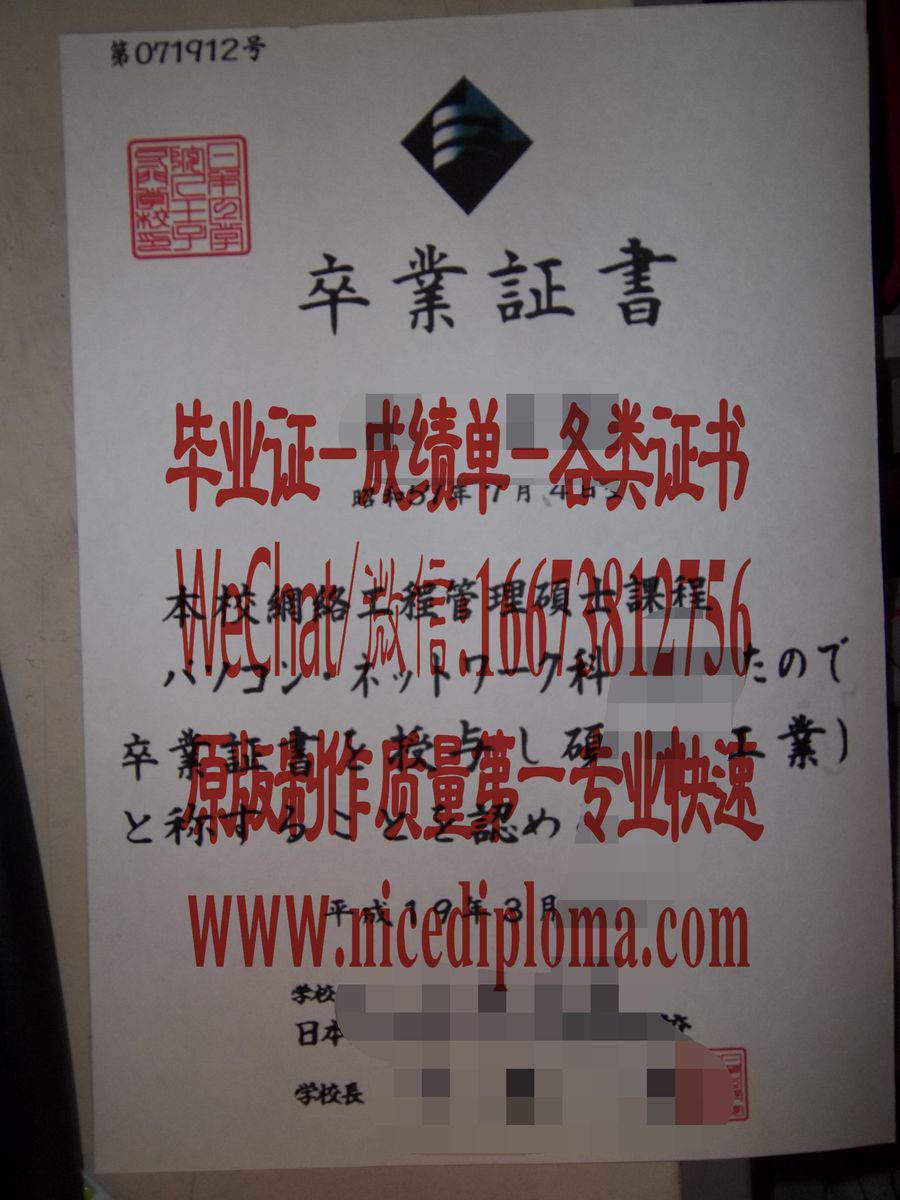 第071912号
卒業証書
毕业证一成绩单一各类证书
昭和51年7月4日
WeChat/微信:16673812756
本校網絡工程管理碩士課程
パソコン・ネットワーク科
たので
原版制作质量第一专业快速
卒業証書を授与し碩
工業)
と称することを認め
www.nicediploma.com
平成19年3月
学校
日本
学校長